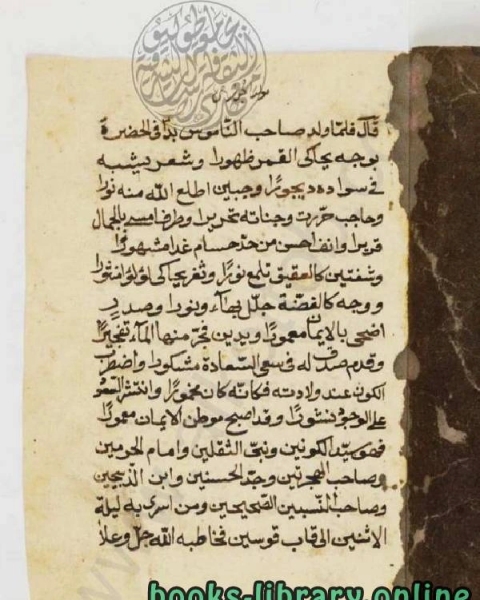 قال فلما ولد صاحب الناموس بدا في الحضرة
بوجه يحاكي القمر ظهورا وشعر يشبه
في سواده ديجورا وجبين اطلع الله منه نورا
وحاجب حررت وجناته تحريرا وطرفا مسي بالجمال
قريرا وانف احسن من حد حسام غدا مشهورا
وشفتين كالعقيق تلمع نورا وثغر يحاكي لؤلؤا منثورا
ووجه كالفضة جلل بهاء ونورا وصدر
اضحى بالايمان معمورا ويدين فجر منها الماء تفجيرا
وقدم صدق له في سعي السعادة مشكورا واضطرب
الكون عند ولادته فكانه كان مخمورا وانتشر السعود
على الوجود نشورا وقد اصبح موطن الايمان معمورا
فهو سيد الكونين ونبي الثقلين وامام الحرمين
وصاحب الهجرتين وجد الحسنين وابن الذبيحين
وصاحب النسبين الصحيحين ومن اسرى به ليلة
الاثنين الى قاب قوسين فخاطبه الله جل وعلا
books-library.online